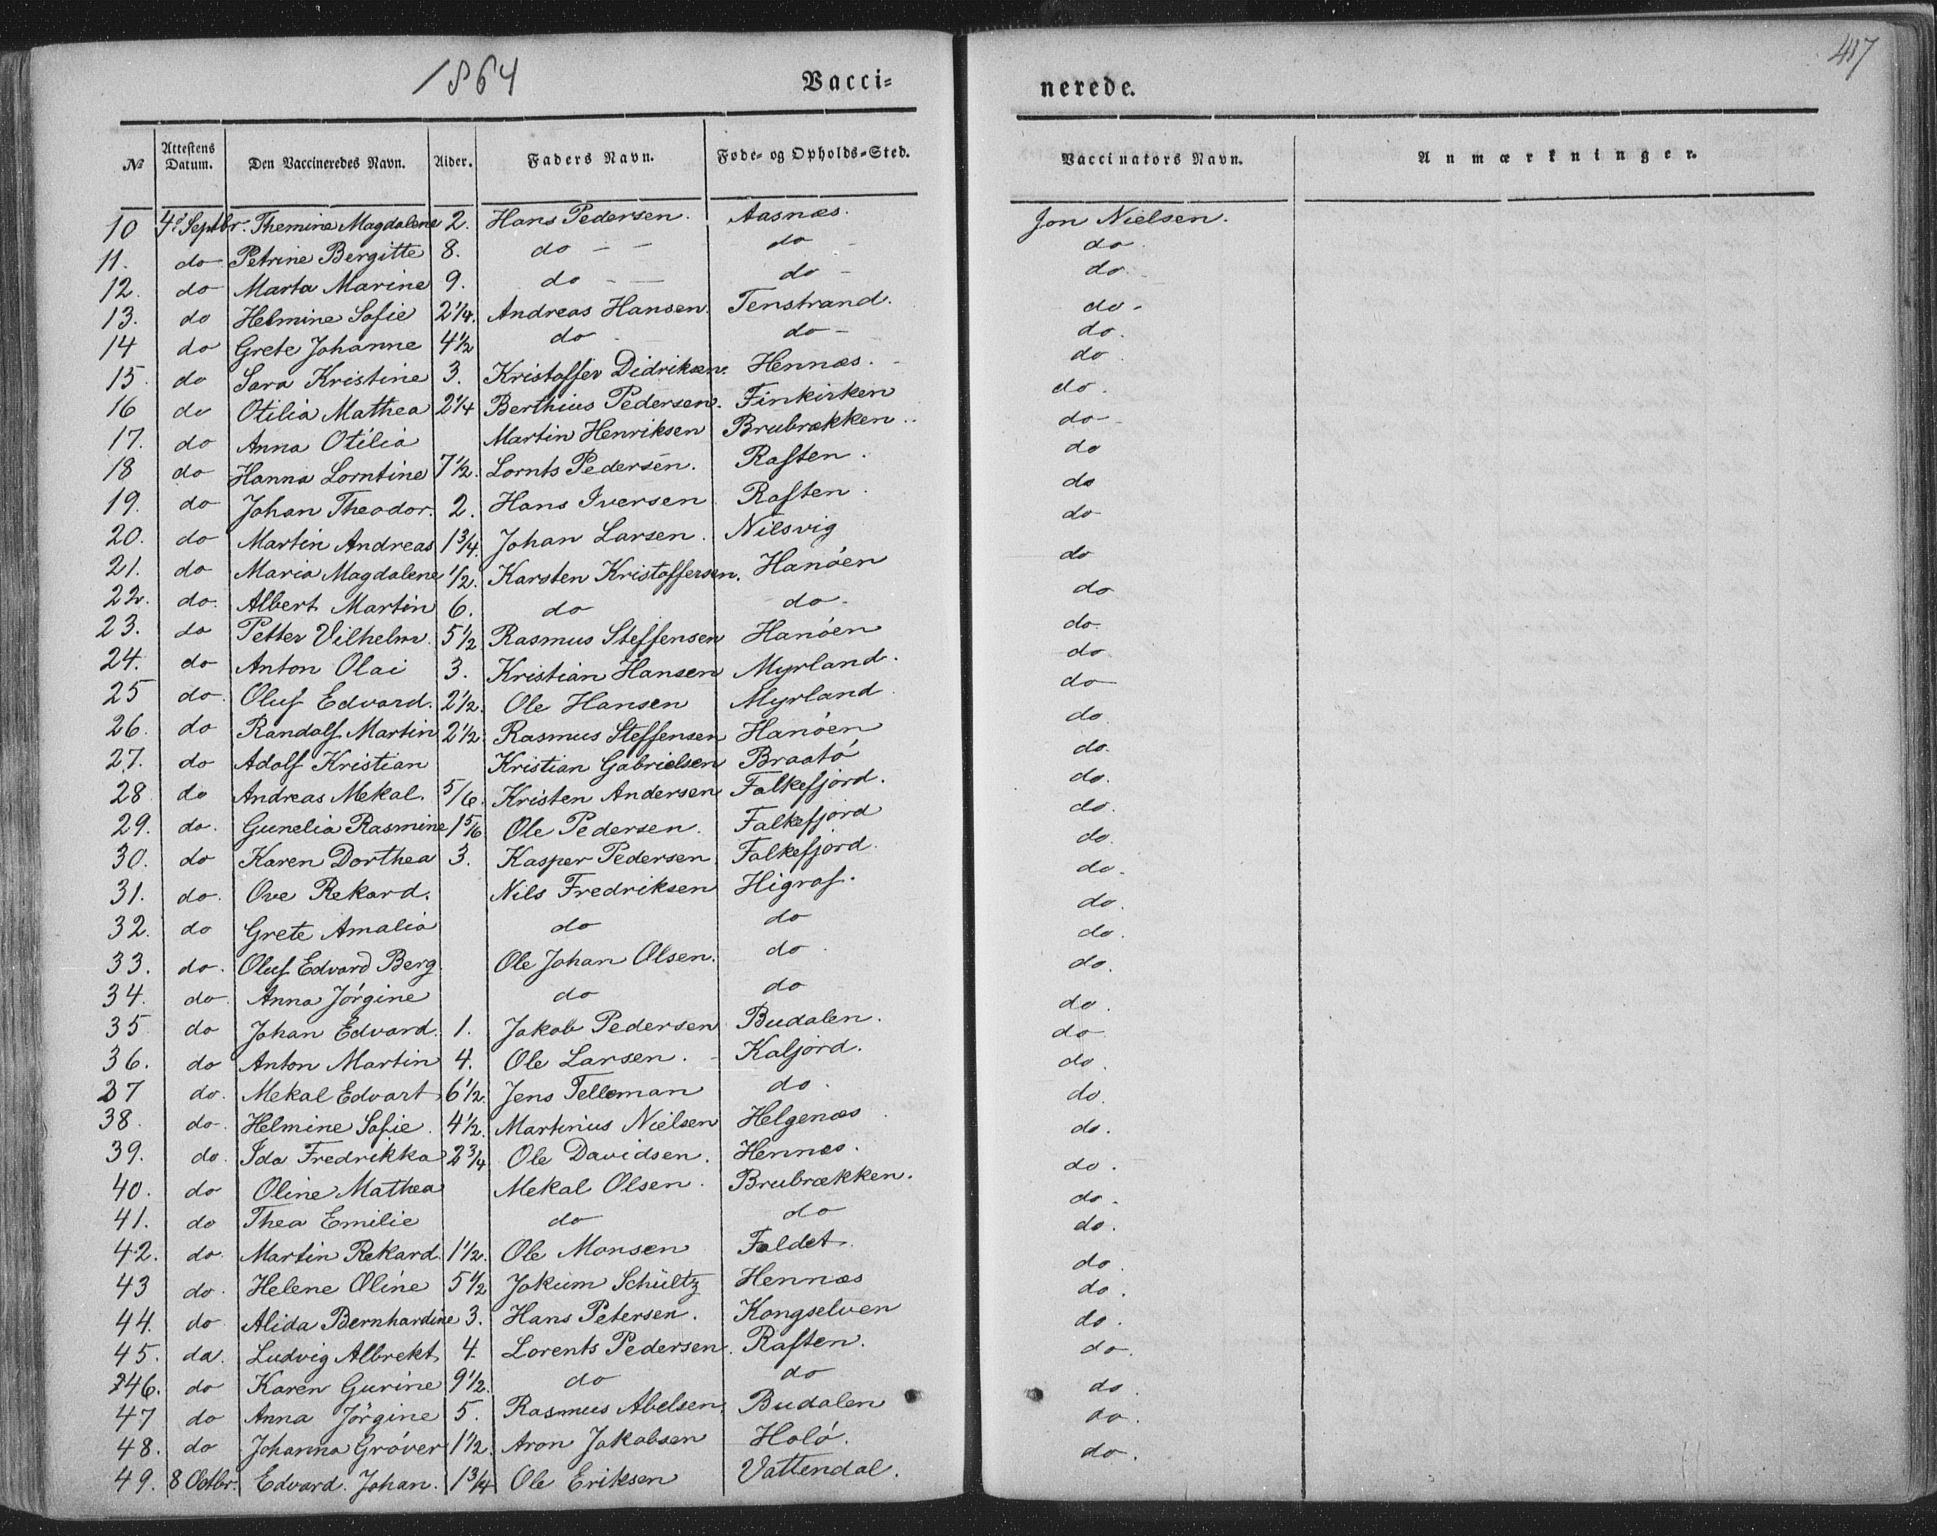 1864 Vacci= nerede. 417
No Attestens Datum. Den Vaccineredes Navn. Alder. Faders Navn. Føde- og Opholds-Sted. Vaccinators Navn. Anmærkninger.
10 4d Septbr. Themine Magdalene 2. Hans Pedersen. Aasnæs. Jon Nielsen.
11. do Petrine Bergitte 8. do do do
12. do Marta Marine 9. do do do
13. do Helmine Sofie 2 1/4. Andreas Hansen. Tenstrand. do
14 do Grete Johanne 4 1/2 do do do.
15. do Sara Kristine 3. Kristoffer Didriksen. Hennæs. do
16 do Otilia Mathea 2 1/4 Berthius Pedersen. Finkirken do.
17. do Anna Otilia Martin Henriksen Brubrækken do
18 do Hanna Lorntine 7 1/2. Lornts Pedersen. Raften. do
19. do Johan Theodor. 2. Hans Iversen Raften. do
20. do Martin Andreas 1 3/4. Johan Larsen. Nilsvig do
21. do Maria Magdalene 1/2. Karsten Kristoffersen. Hanöen do
22. do. Albert Martin 6. do do do
23. do Petter Vilhelm. 5 1/2 Rasmus Steffensen Hanöen do.
24. do Anton Olai 3. Kristian Hansen Myrland. do
25 do Oluf Edvard. 2 1/2. Ole Hansen Myrland do
26. do Randolf Martin 2 1/2. Rasmus Steffensen Hanöen do.
27. do Adolf Kristian Kristian Gabrielsen Braatö do.
28 do Andreas Mekal. 5/6. Kristen Andersen Falkefjord. do.
29. do. Gunelia Rasmine 1 5/6 Ole Pedersen. Falkefjord do.
30. do Karen Dorthea 3. Kasper Pedersen. Falkefjord. do.
31. do. Ove Rekard. Nils Fredriksen Higraf. do.
32. do Grete Amalia do do do.
33. do. Oluf Edvard Berg. Ole Johan Olsen. do do.
34. do. Anna Jörgine do do do.
35 do Johan Edvard. 1. Jakob Pedersen Budalen. do.
36. do Anton Martin 4. Ole Larsen. Kaljord. do
37 do. Mekal Edvart 6 1/2. Jens Telleman do. do.
38. do. Helmine Sofie. 4 1/2. Martinus Nielsen Helgenæs do.
39. do. Ida Fredrikka 2 3/4 Ole Davidsen. Hennæs. do.
40. do Oline Mathea Mekal Olsen. Brubrækken. do.
41. do Thea Emilie do do do.
42. do. Martin Rekard. 1 1/2. Ole Monsen Foldet. do.
43 do. Helene Oline 5 1/2 Jokum Schültz Hennæs do.
44. do. Alida Bernhardine 3. Hans Petersen. Kongselven do.
45. do. Ludvig Albrekt 4. Lorents Pedersen. Raften. do.
46. do Karen Gurine 9 1/2. do do do.
47 do Anna Jörgine 5. Rasmus Abelsen. Budalen do.
48. do Johanna Gröver 1 1/2. Aron Jakobsen Holö. do.
49. 8 Octbr. Edvard Johan. 1 3/4 Ole Eriksen Vattendal. do.